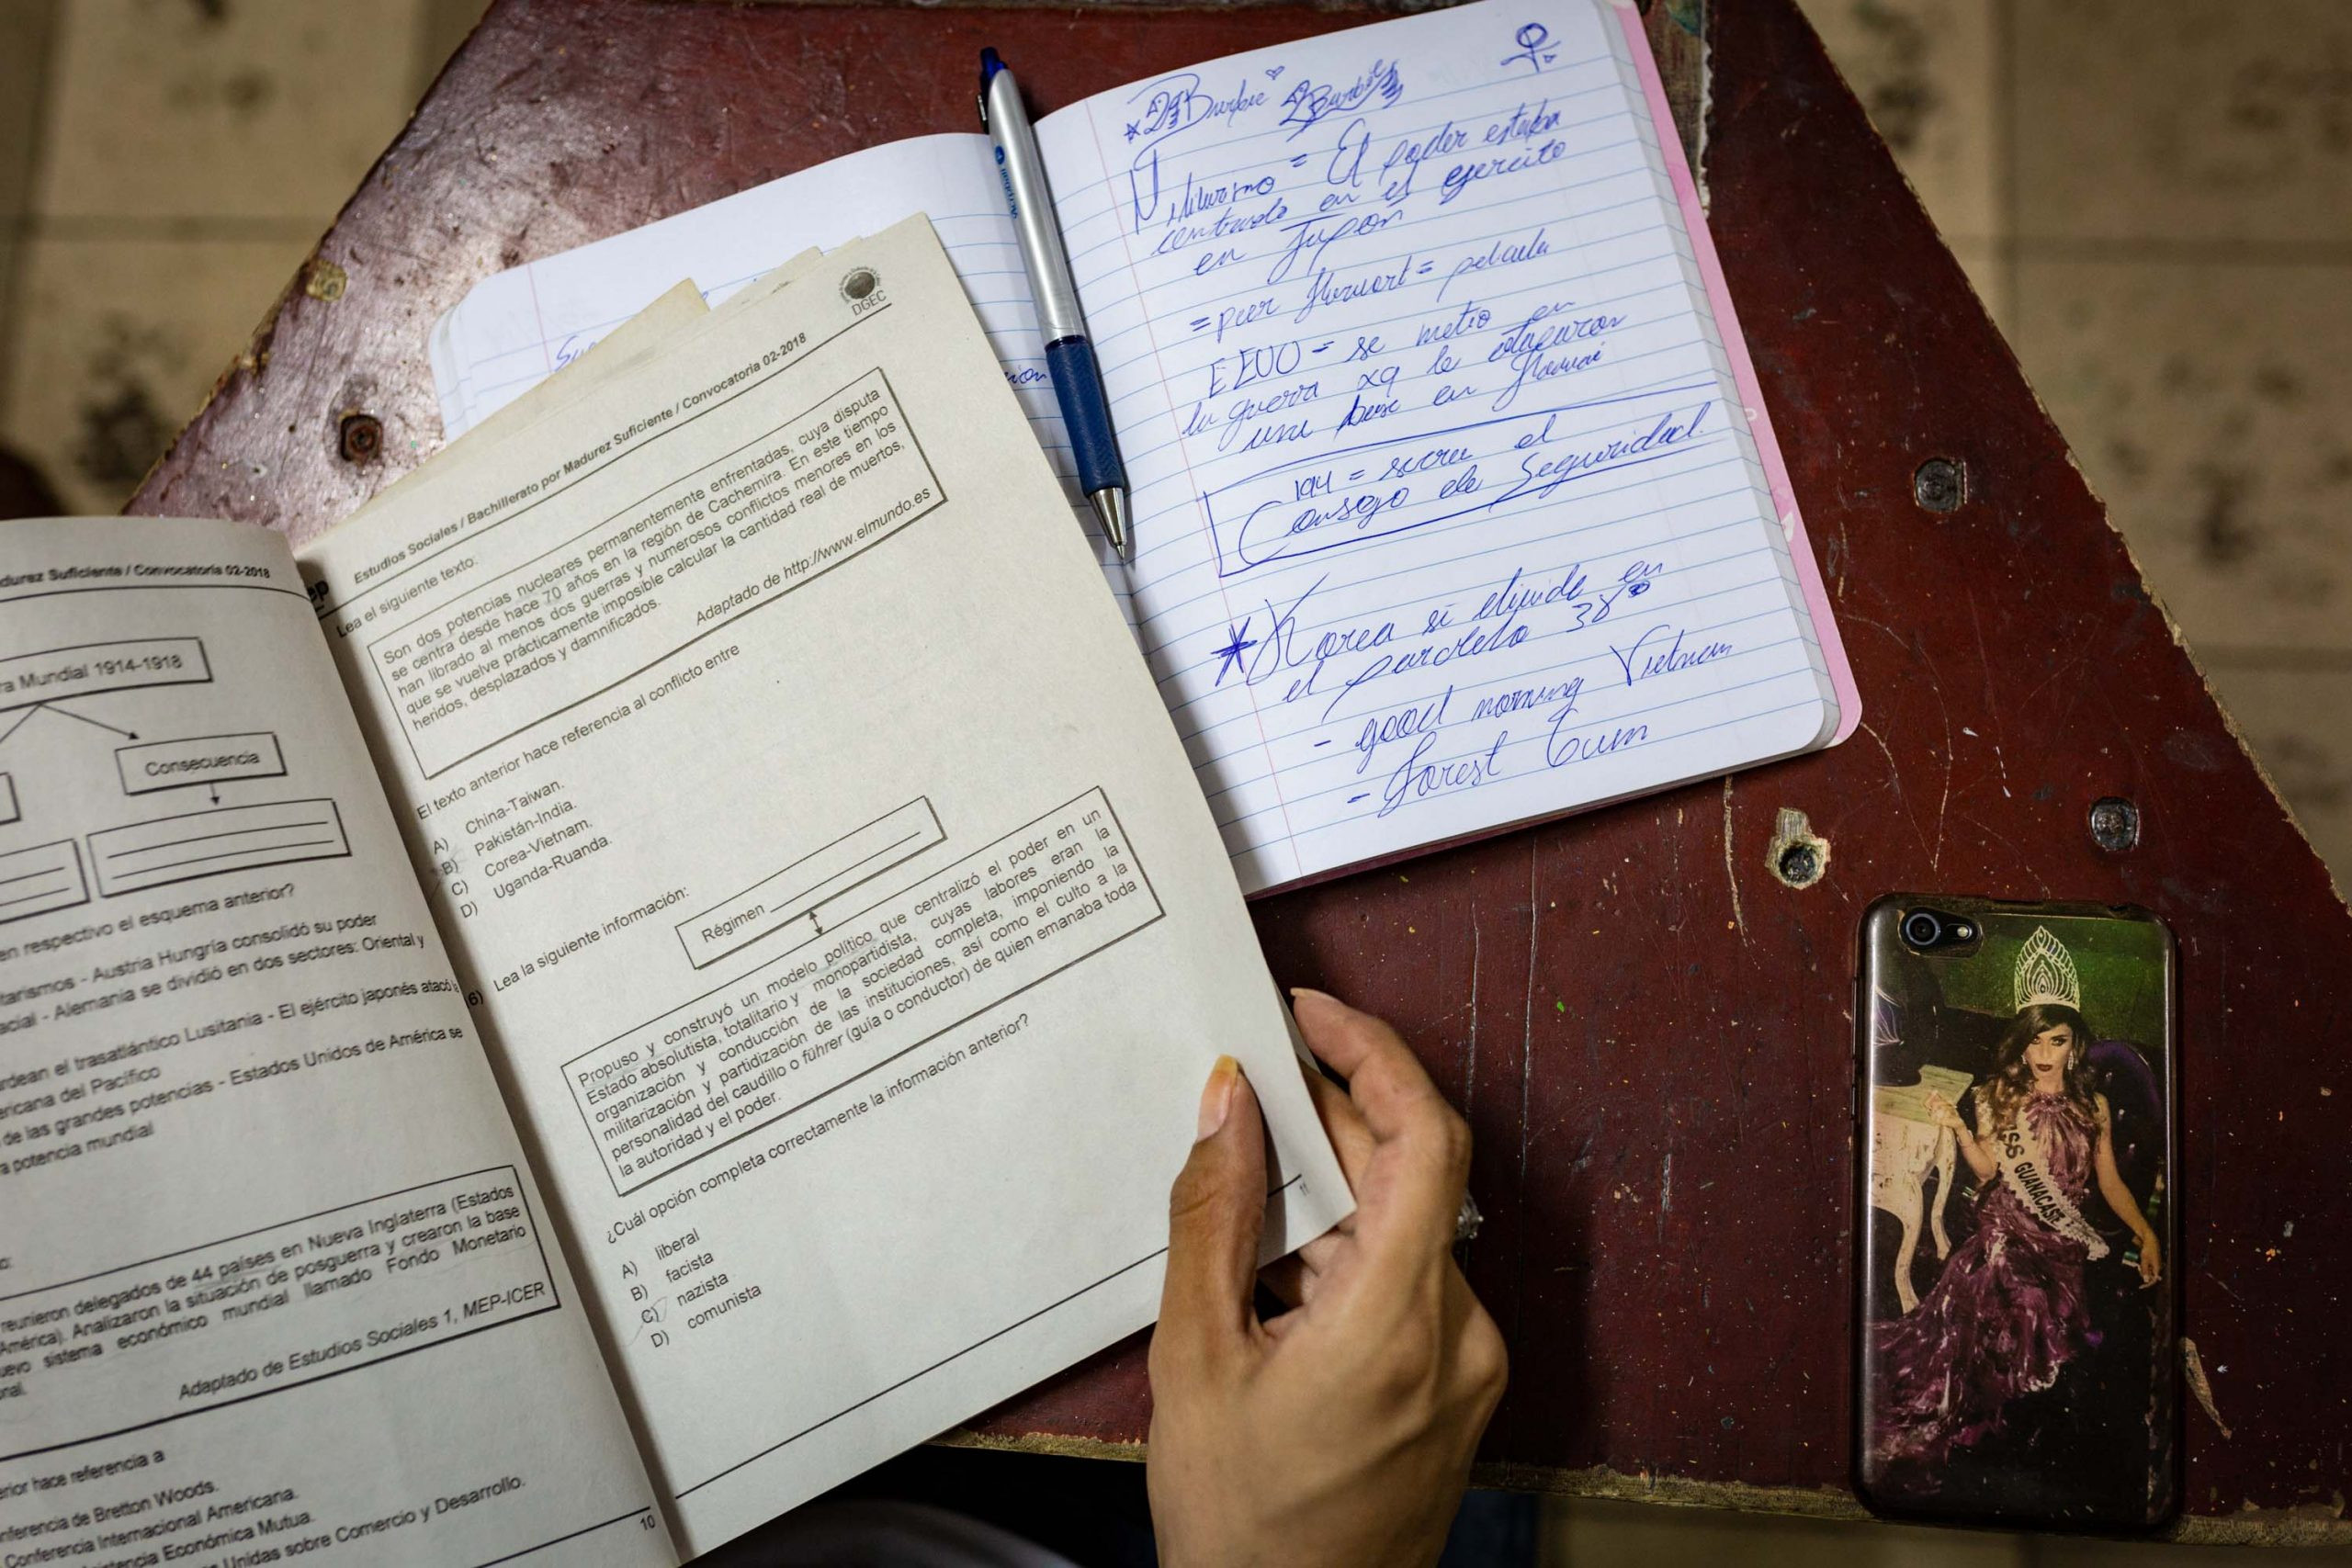 durez Suficiente / Convocatoria 02-2018
ra Mundial 1914-1918
Consecuencia
en respectivo el esquema anterior?
tarismos - Austria Hungría consolidó su poder
acial - Alemania se dividió en dos sectores: Oriental y
rdean el trasatlántico Lusitania - El ejército japonés atacó
ericana del Pacífico
de las grandes potencias - Estados Unidos de América se
a potencia mundial
reunieron delegados de 44 países en Nueva Inglaterra (Estados
América). Analizaron la situación de posguerra y crearon la base
uevo sistema económico mundial llamado Fondo Monetario
nal.
Adaptado de Estudios Sociales 1, MEP-ICER
erior hace referencia a
nferencia de Bretton Woods.
Conferencia Internacional Americana.
sistencia Económica Mutua.
Unidas sobre Comercio y Desarrollo.
10
DGEC
ep
Estudios Sociales / Bachillerato por Madurez Suficiente / Convocatoria 02-2018
Lea el siguiente texto:
Son dos potencias nucleares permanentemente enfrentadas, cuya disputa
se centra desde hace 70 años en la región de Cachemira. En este tiempo
han librado al menos dos guerras y numerosos conflictos menores en los
que se vuelve prácticamente imposible calcular la cantidad real de muertos,
heridos, desplazados y damnificados.
Adaptado de http://www.elmundo.es
El texto anterior hace referencia al conflicto entre
A) China-Taiwan.
B) Pakistán-India.
C) Corea-Vietnam.
D) Uganda-Ruanda.
6) Lea la siguiente información:
Régimen
Propuso y construyó un modelo político que centralizó el poder en un
Estado absolutista, totalitario y monopartidista, cuyas labores eran la
organización y conducción de la sociedad completa, imponiendo la
militarización y partidización de las instituciones, así como el culto a la
personalidad del caudillo o führer (guía o conductor) de quien emanaba toda
la autoridad y el poder.
¿Cuál opción completa correctamente la información anterior?
A) liberal
B) facista
C) nazista
D) comunista
11
Barbie Barbie
= El poder estaba
centrado en el ejercito
en Japon
= peer = pelicula
EEUU = se metio en
la guerra xq le atacaron
una base en Hawai
= el
Consejo de Seguridad.
Korea se divide en
el paralelo 38°
- good morning Vietnam
- Forest Gum
ISS GUANACASTE